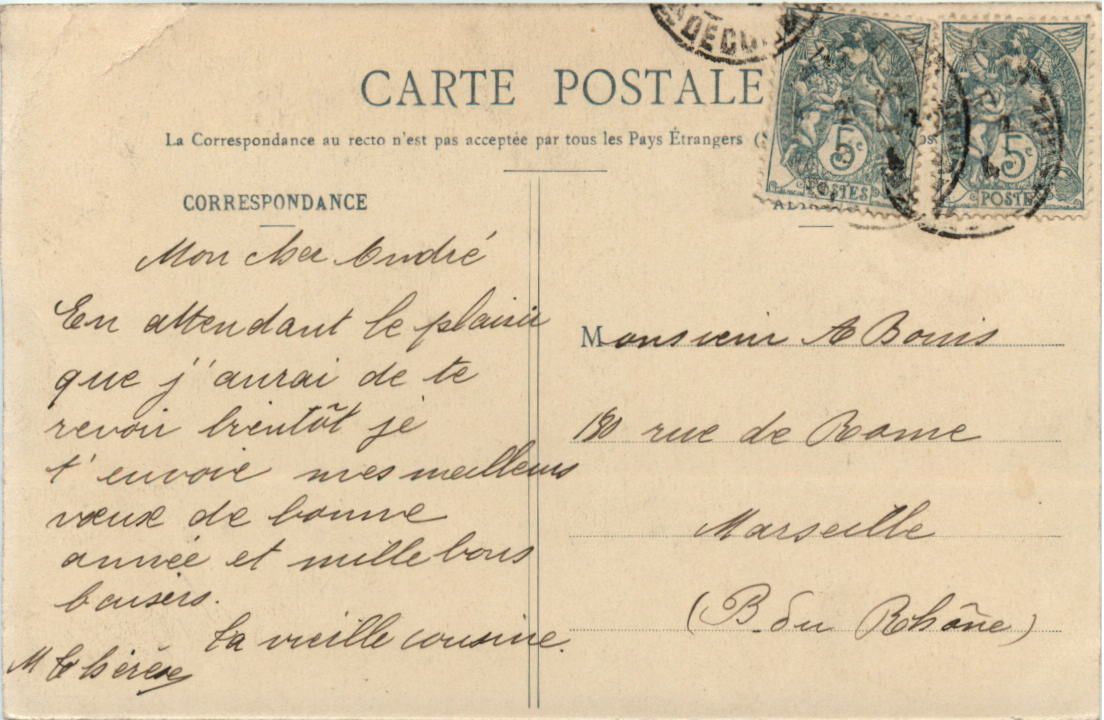 CARTE POSTALE
La Correspondance au recto n'est pas acceptée par tous les Pays Étrangers
CORRESPONDANCE
Mon cher André
En attendant le plaisir
que j'aurai de te
revoir bientôt je
t'envoie mes meilleurs
vœux de bonne
année et mille bons
baisers.
Ta vieille cousine.
M Thérèse
5c
POSTES
5c
POSTES
Monsieur A Bouis
130 rue de Rome
Marseille
(B. du Rhône)